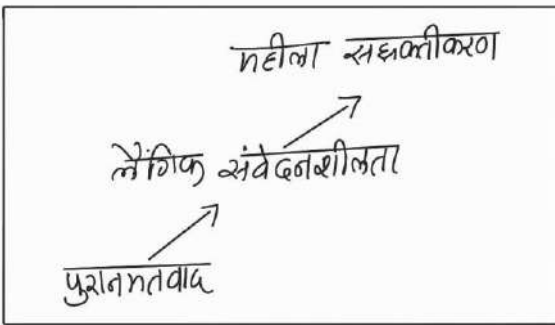 महीला सशक्तीकरण
लैंगिक संवेदनशीलता
पुरातनमतवाद